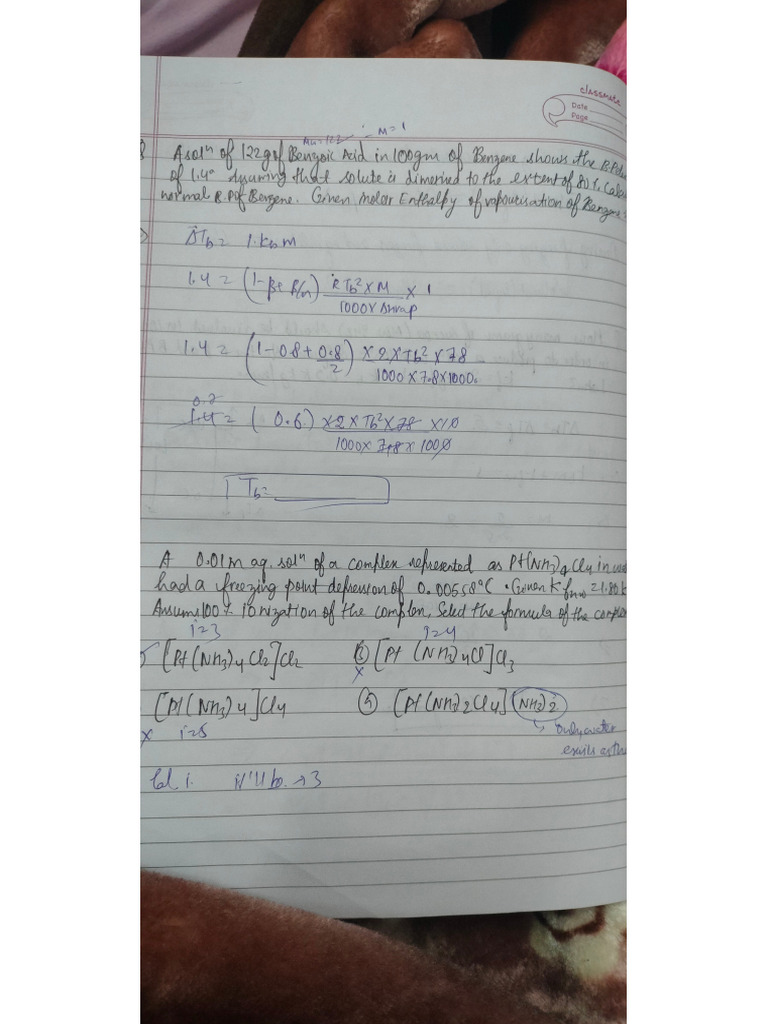 classmate
Date
Page
Mw=122 ∴ M=1
A solⁿ of 122g of Benzoic Acid in 100gm of Benzene shows the B.P
of 1.4° Assuming that solute is dimerised to the extent of 80%.
normal B.P of Benzene. Given Molar Enthalpy of vapourisation of Benzene
ΔTb = i.kb m
1.4 = (1-β+β/n) RTb²×M × 1
1000×ΔHvap
1.4 = (1-0.8+0.8/2) ×2×Tb²×78
1000×7.8×1000
0.7
1.4 = (0.6) ×2×Tb²×78 ×10
1000×7.8×1000
Tb=
A 0.01m aq. solⁿ of a complex represented as Pt(NH3)4Cl4 in
had a freezing point depression of 0.00558°C. Given K =1.86
Assume 100% ionization of the complex, Select the formula of the
i=3 i=4
[Pt(NH3)4Cl2]Cl2 [Pt(NH3)4Cl]Cl3
x
[Pt(NH3)4]Cl4 [Pt(NH3)2Cl4](NH3)2
x i=5 Only outer
Cal i. i'll be → 3